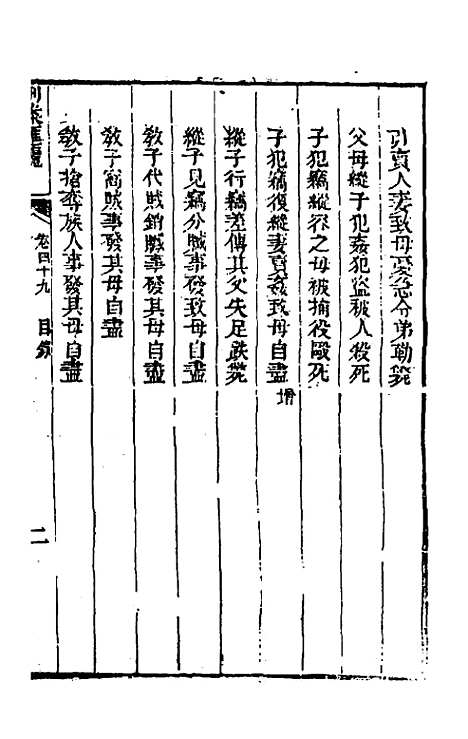 引賣人妻致母忿令弟勒斃
父母縱子犯姦犯盜被人殺死
子犯竊縱容之母被捕役毆死
子犯竊復縱妻賣姦致母自盡 增
縱子行竊差傳其父失足跌斃
縱子見竊分贓事發致母自盡
教子代賊銷贓事發其母自盡
教子窩賊事發其母自盡
教子搶奪族人事發其母自盡
刑案匯覽 卷四十九 目錄 二